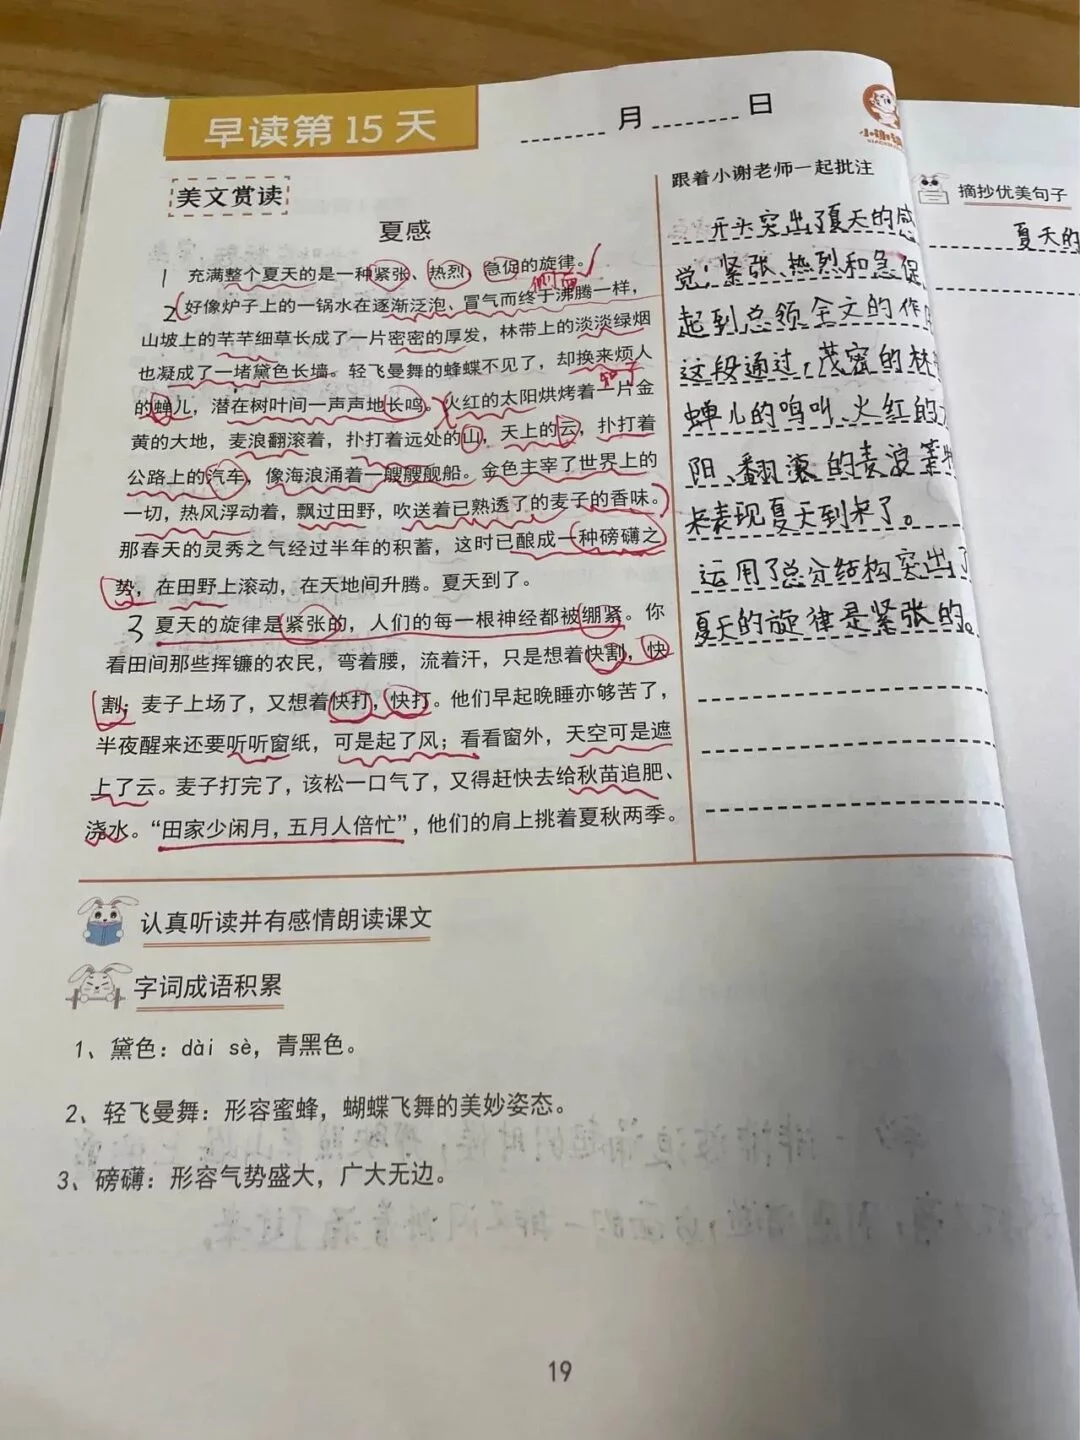 早读第 15 天
月 日
美文赏读
夏感
1 充满整个夏天的是一种紧张、热烈、急促的旋律。
2 好像炉子上的一锅水在逐渐泛泡、冒气而终于沸腾一样，
山坡上的芊芊细草长成了一片密密的厚发，林带上的淡淡绿烟
也凝成了一堵黛色长墙。轻飞曼舞的蜂蝶不见了，却换来烦人
的蝉儿，潜在树叶间一声声地长鸣。火红的太阳烘烤着一片金
黄的大地，麦浪翻滚着，扑打着远处的山，天上的云，扑打着
公路上的汽车，像海浪涌着一艘艘舰船。金色主宰了世界上的
一切，热风浮动着，飘过田野，吹送着已熟透了的麦子的香味。
那春天的灵秀之气经过半年的积蓄，这时已酿成一种磅礴之
势，在田野上滚动，在天地间升腾。夏天到了。
3 夏天的旋律是紧张的，人们的每一根神经都被绷紧。你
看田间那些挥镰的农民，弯着腰，流着汗，只是想着快割，快
割；麦子上场了，又想着快打，快打。他们早起晚睡亦够苦了，
半夜醒来还要听听窗纸，可是起了风；看看窗外，天空可是遮
上了云。麦子打完了，该松一口气了，又得赶快去给秋苗追肥、
浇水。“田家少闲月，五月人倍忙”，他们的肩上挑着夏秋两季。
跟着小谢老师一起批注
开头突出了夏天的感
觉，紧张、热烈和急促
起到总领全文的作
这段通过，茂密的林
蝉儿的鸣叫、火红的
阳、翻滚的麦浪等
来表现夏天到来了。
运用了总分结构突出了
夏天的旋律是紧张的。
认真听读并有感情朗读课文
字词成语积累
1、黛色：dài sè，青黑色。
2、轻飞曼舞：形容蜜蜂，蝴蝶飞舞的美妙姿态。
3、磅礴：形容气势盛大，广大无边。
19
摘抄优美句子
夏天的